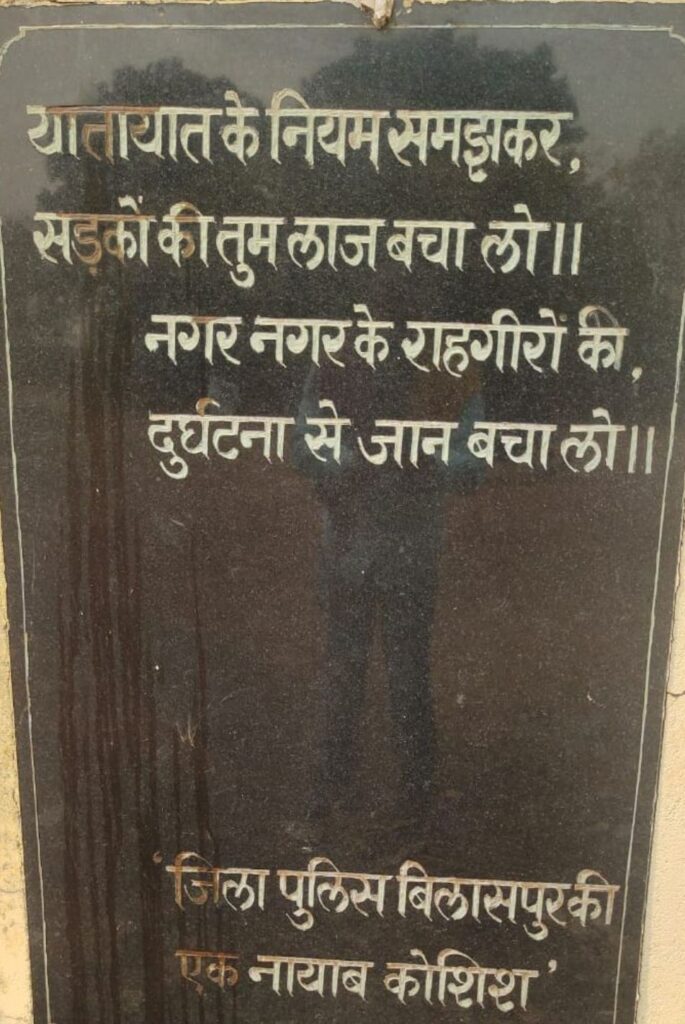 यातायात के नियम समझकर,
सड़कों की तुम लाज बचा लो॥
नगर नगर के राहगीरों की,
दुर्घटना से जान बचा लो॥
'जिला पुलिस बिलासपुर की
एक नायाब कोशिश'